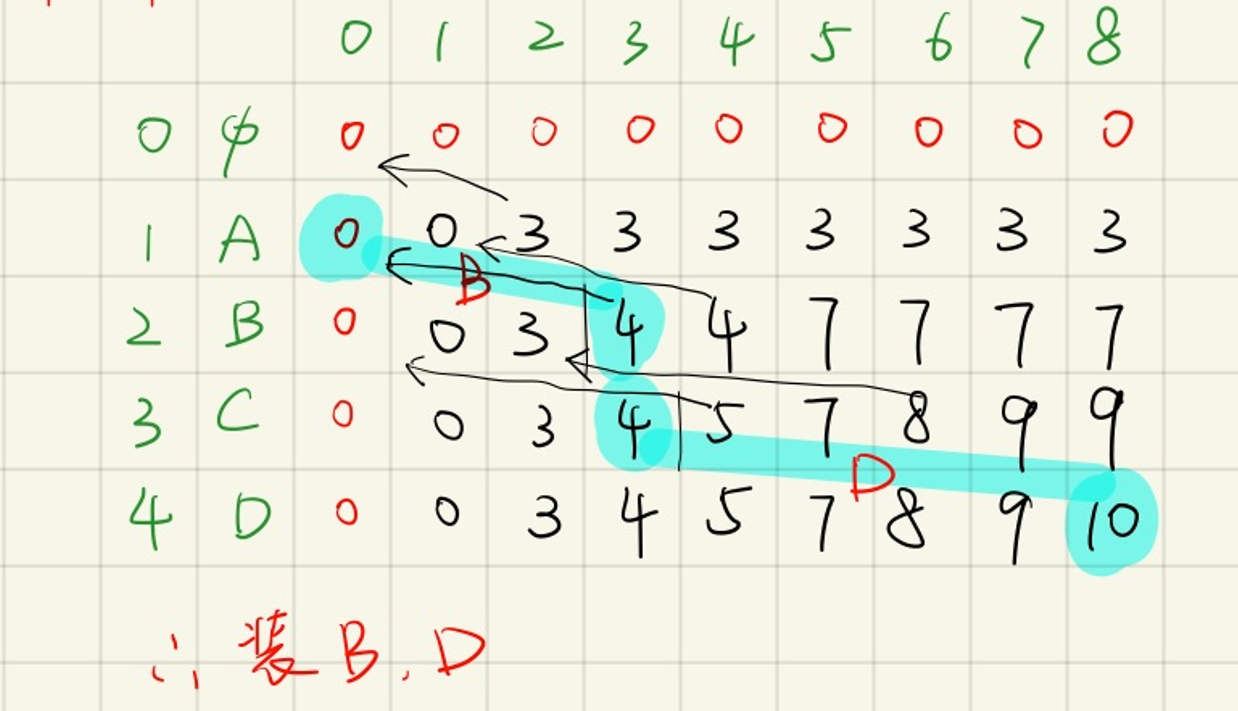 0 1 2 3 4 5 6 7 8
0 ϕ 0 0 0 0 0 0 0 0 0
1 A 0 0 3 3 3 3 3 3 3
B
2 B 0 0 3 4 4 7 7 7 7
3 C 0 0 3 4 5 7 8 9 9
D
4 D 0 0 3 4 5 7 8 9 10
∴ 装 B, D